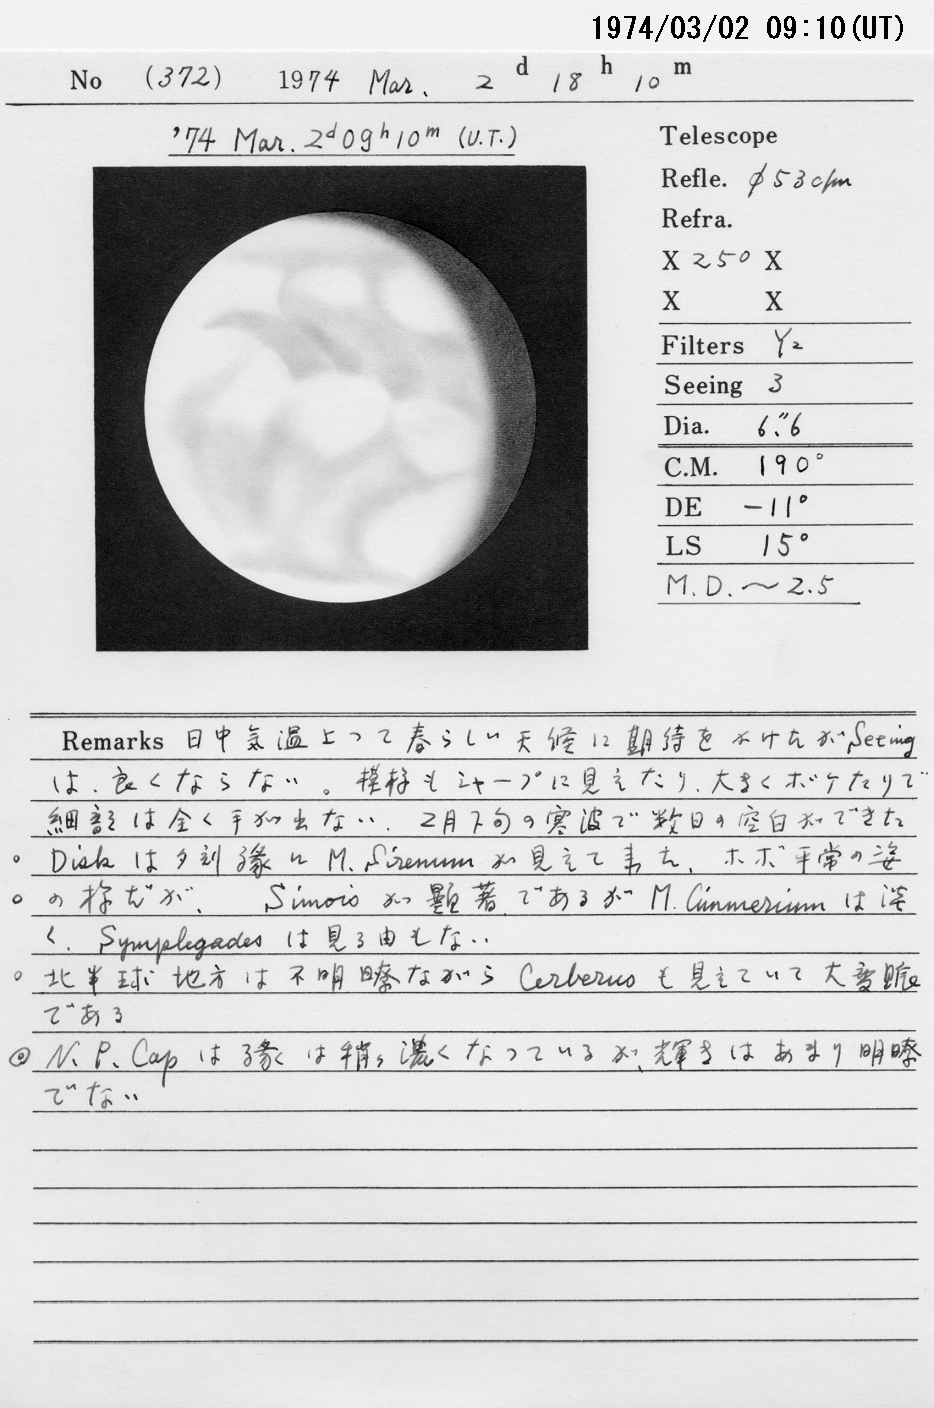 1974/03/02 09:10(UT)
No (372) 1974 Mar. 2 d 18 h 10 m
'74 Mar. 2d09h10m (U.T.)
Telescope
Refle. φ53cm
Refra.
X 250 X
X X
Filters Y2
Seeing 3
Dia. 6."6
C.M. 190°
DE -11°
LS 15°
M.D. ～2.5
Remarks 日中気温上って春らしい天候に期待をかけたがSeeing
は、良くならない。模様もシャープに見えたり、大きくボケたりで
細部は全く手が出ない、2月下旬の寒波で数日の空白ができた
○ Diskは夕刻縁にM. Sirenumが見えて来た、ホボ平常の姿
○ の様だが、Simoisが顕著であるがM. Cimmeriumは淡
く、Symplegadesは見る由もない
○ 北半球地方は不明瞭ながらCerberusも見えていて大変賑
である
◎ N. P. Capは縁くは稍々濃くなっているが、輝きはあまり明瞭
でない